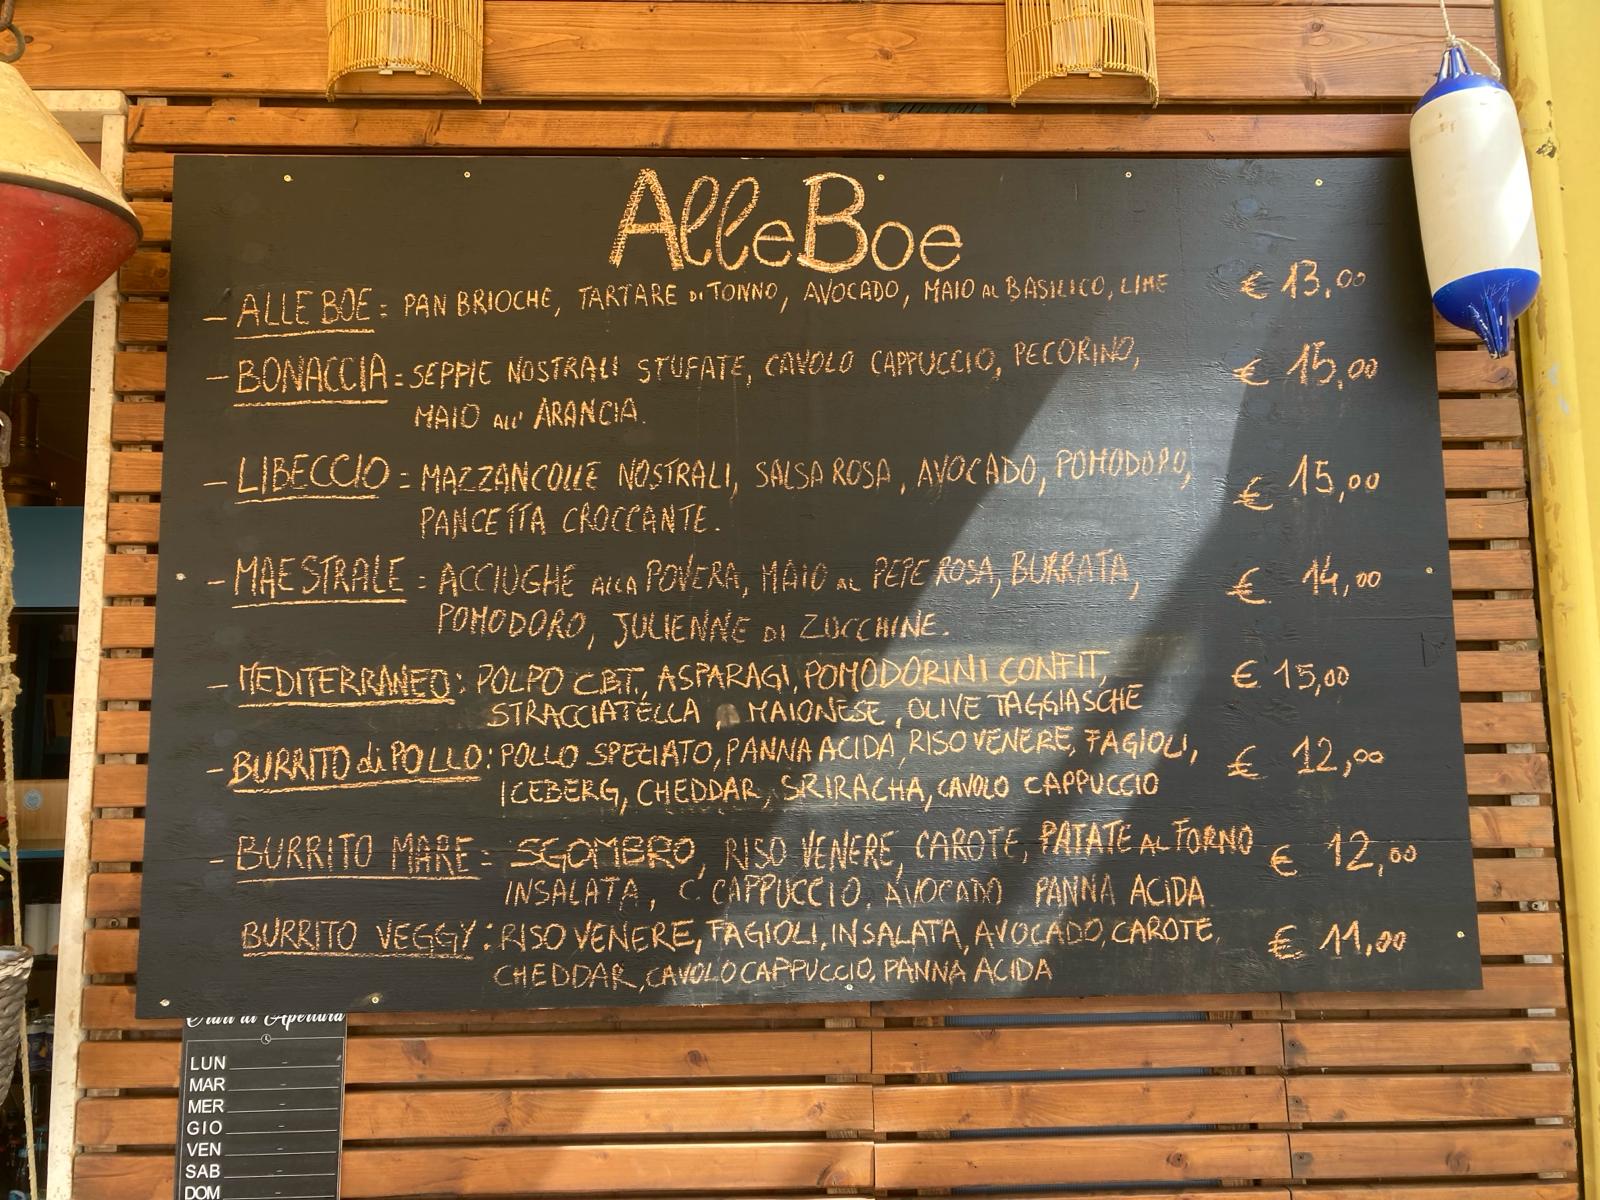 AlleBoe
– ALLE BOE = PAN BRIOCHE, TARTARE DI TONNO, AVOCADO, MAIO AL BASILICO, LIME € 13,00
– BONACCIA = SEPPIE NOSTRALI STUFATE, CAVOLO CAPPUCCIO, PECORINO, € 15,00
MAIO ALL' ARANCIA.
– LIBECCIO = MAZZANCOLLE NOSTRALI, SALSA ROSA, AVOCADO, POMODORO, € 15,00
PANCETTA CROCCANTE.
– MAESTRALE = ACCIUGHE ALLA POVERA, MAIO AL PEPE ROSA, BURRATA, € 14,00
POMODORO, JULIENNE DI ZUCCHINE.
– MEDITERRANEO: POLPO C.B.T., ASPARAGI, POMODORINI CONFIT, € 15,00
STRACCIATELLA, MAIONESE, OLIVE TAGGIASCHE
– BURRITO di POLLO: POLLO SPEZIATO, PANNA ACIDA, RISO VENERE, FAGIOLI, € 12,00
ICEBERG, CHEDDAR, SRIRACHA, CAVOLO CAPPUCCIO
– BURRITO MARE = SGOMBRO, RISO VENERE, CAROTE, PATATE AL FORNO € 12,00
INSALATA, C. CAPPUCCIO, AVOCADO PANNA ACIDA
BURRITO VEGGY: RISO VENERE, FAGIOLI, INSALATA, AVOCADO, CAROTE, € 11,00
CHEDDAR, CAVOLO CAPPUCCIO, PANNA ACIDA
Orari di Apertura
LUN –
MAR –
MER –
GIO –
VEN –
SAB –
DOM –